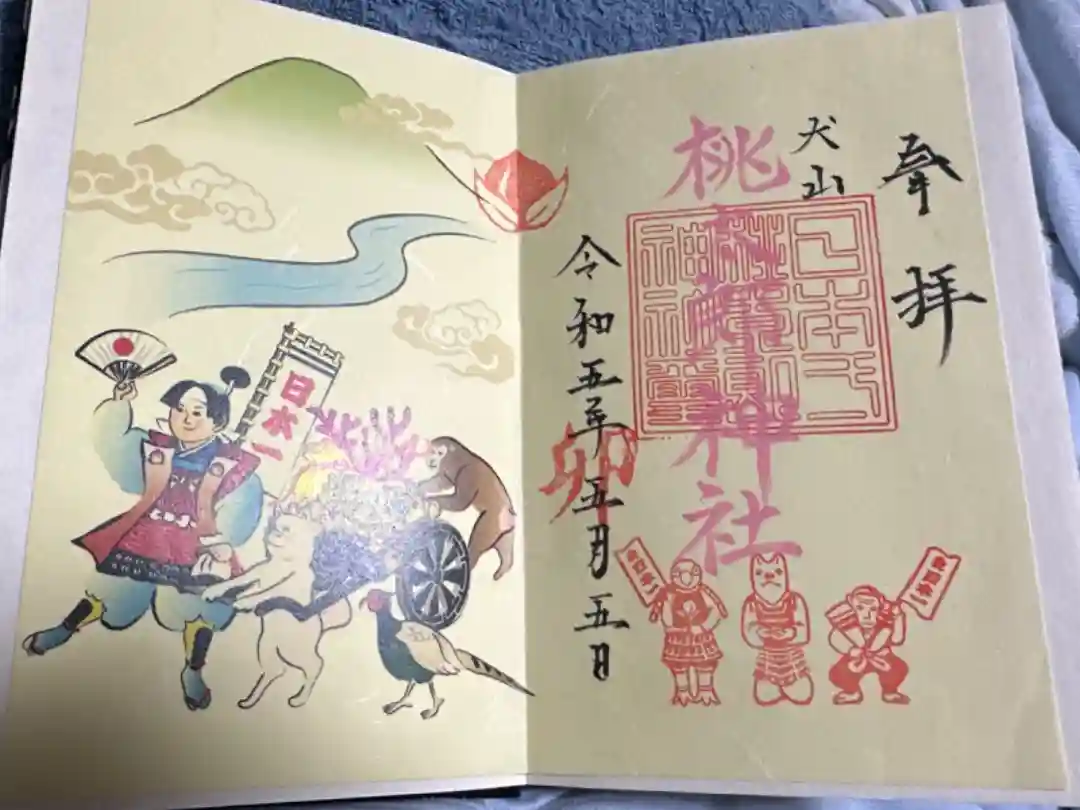 奉拝
犬山
桃太郎神社
令和五年五月五日
卯
日本一